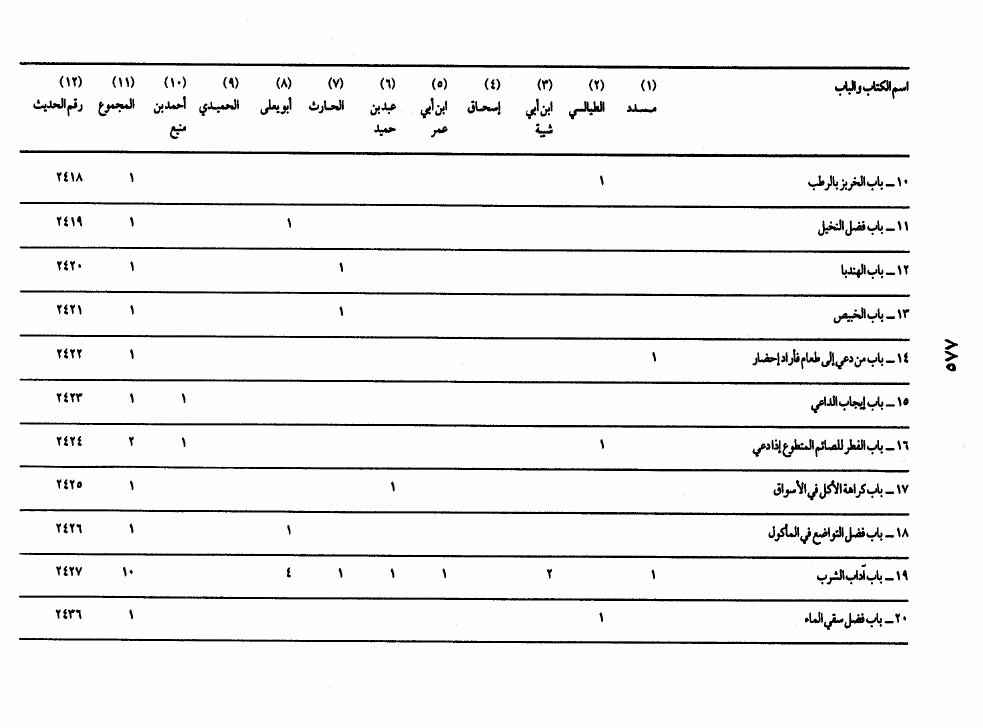 اسم الكتاب والباب (١) (٢) (٣) (٤) (٥) (٦) (٧) (٨) (٩) (١٠) (١١) (١٢)
مسدد الطيالسي ابن أبي إسحاق ابن أبي عبد بن الحارث أبو يعلى الحميدي أحمد بن المجموع رقم الحديث
شيبة عمر حميد منيع
١٠ ــ باب الخربز بالرطب ١ ١ ٢٤١٨
١١ ــ باب فضل النخيل ١ ١ ٢٤١٩
١٢ ــ باب الهندبا ١ ١ ٢٤٢٠
١٣ ــ باب الخبيص ١ ١ ٢٤٢١
١٤ ــ باب من دعي إلى طعام فأراد إحضار ١ ١ ٢٤٢٢
١٥ ــ باب إيجاب الداعي ١ ١ ٢٤٢٣
١٦ ــ باب الفطر للصائم المتطوع إذا دعي ١ ١ ٢ ٢٤٢٤
١٧ ــ باب كراهة الأكل في الأسواق ١ ١ ٢٤٢٥
١٨ ــ باب فضل التواضع في المأكول ١ ١ ٢٤٢٦
١٩ ــ باب آداب الشرب ١ ٢ ١ ١ ١ ٤ ١٠ ٢٤٢٧
٢٠ ــ باب فضل سقي الماء ١ ١ ٢٤٣٦
٥٧٧